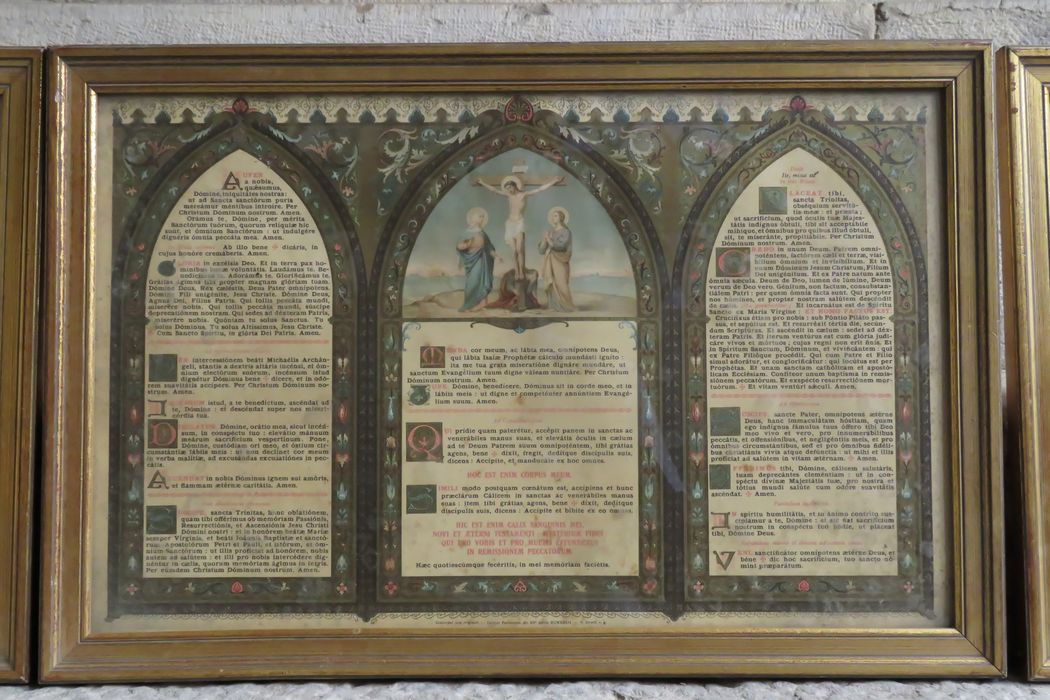 AUFER
a nobis,
quǽsumus,
Dómine, iniquitátes nostras:
ut ad Sancta sanctórum puris
mereámur méntibus introíre. Per
Christum Dóminum nostrum. Amen.
Orámus te, Dómine, per mérita
Sanctórum tuórum, quorum relíquiæ hic
sunt, et ómnium Sanctórum : ut indulgére
dignéris ómnia peccáta mea. Amen.
Ab illo bene + dicáris, in
cujus honóre cremáberis. Amen.
GLÓRIA in excélsis Deo. Et in terra pax ho-
mínibus bonæ voluntátis. Laudámus te. Be-
nedícimus te. Adorámus te. Glorificámus te.
Grátias ágimus tibi propter magnam glóriam tuam.
Dómine Deus, Rex cæléstis, Deus Pater omnípotens.
Dómine Fili unigénite, Jesu Christe. Dómine Deus,
Agnus Dei, Fílius Patris. Qui tollis peccáta mundi,
miserére nobis. Qui tollis peccáta mundi, súscipe
deprecatiónem nostram. Qui sedes ad déxteram Patris,
miserére nobis. Quóniam tu solus Sanctus. Tu
solus Dóminus. Tu solus Altíssimus, Jesu Christe.
Cum Sancto Spíritu, in glória Dei Patris. Amen.
PER intercessiónem beáti Michaélis Archán-
geli, stantis a dextris altáris incénsi, et óm-
nium electórum suórum, incénsum istud
dignétur Dóminus bene + dícere, et in odó-
rem suavitátis accípere. Per Christum Dóminum no-
strum. Amen.
INCÉNSUM istud, a te benedíctum, ascéndat ad
te, Dómine : et descéndat super nos miseri-
córdia tua.
DIRIGÁTUR, Dómine, orátio mea, sicut incén-
sum, in conspéctu tuo : elevátio mánuum
meárum sacrifícium vespertínum. Pone,
Dómine, custódiam ori meo, et óstium cir-
cumstántiæ lábiis meis : ut non declínet cor meum
in verba malítiæ, ad excusándas excusatiónes in pec-
cátis.
ACCÉNDAT in nobis Dóminus ignem sui amóris,
et flammam ætérnæ caritátis. Amen.
SÚSCIPE, sancta Trínitas, hanc oblatiónem,
quam tibi offérimus ob memóriam Passiónis,
Resurrectiónis, et Ascensiónis Jesu Christi
Dómini nostri : et in honórem beátæ Maríæ
semper Vírginis, et beáti Joánnis Baptístæ et sanctó-
rum Apostolórum Petri et Pauli, et istórum, et óm-
nium Sanctórum : ut illis profíciat ad honórem, nobis
autem ad salútem : et illi pro nobis intercédere dig-
néntur in cælis, quorum memóriam ágimus in terris.
Per eúmdem Christum Dóminum nostrum. Amen.
MUNDA cor meum, ac lábia mea, omnípotens Deus,
qui lábia Isaíæ Prophétæ cálculo mundásti igníto :
ita me tua grata miseratióne dignáre mundáre, ut
sanctum Evangélium tuum digne váleam nuntiáre. Per Christum
Dóminum nostrum. Amen.
JUBE, Dómine, benedícere. Dóminus sit in corde meo, et in
lábiis meis : ut digne et competénter annúntiem Evangé-
lium suum. Amen.
QUI prídie quam paterétur, accépit panem in sanctas ac
venerábiles manus suas, et elevátis óculis in cælum
ad te Deum Patrem suum omnipoténtem, tibi grátias
agens, bene + dixit, fregit, dedítque discípulis suis,
dicens : Accípite, et manducáte ex hoc omnes.
HOC EST ENIM CORPUS MEUM.
SÍMILI modo postquam cœnátum est, accípiens et hunc
præclárum Cálicem in sanctas ac venerábiles manus
suas : item tibi grátias agens, bene + dixit, dedítque
discípulis suis, dicens : Accípite et bíbite ex eo omnes.
HIC EST ENIM CALIX SANGUINIS MEI,
NOVI ET ÆTERNI TESTAMENTI : MYSTERIUM FIDEI
QUI PRO VOBIS ET PRO MULTIS EFFUNDETUR
IN REMISSIONEM PECCATORUM.
Hæc quotiescúmque fecéritis, in mei memóriam faciétis.
Ite, missa est
PLÁCEAT tibi,
sancta Trínitas,
obséquium servitú-
tis meæ : et præsta ;
ut sacrifícium, quod óculis tuæ Majes-
tátis indígnus óbtuli, tibi sit acceptábile
mihíque, et ómnibus pro quibus illud óbtuli,
sit, te miseránte, propitiábile. Per Christum
Dóminum nostrum. Amen.
CREDO in unum Deum. Patrem omni-
poténtem, factórem cæli et terræ, visi-
bílium ómnium et invisibílium. Et in
unum Dóminum Jesum Christum, Fílium
Dei unigénitum. Et ex Patre natum ante
ómnia sǽcula. Deum de Deo, lumen de lúmine, Deum
verum de Deo vero. Génitum, non factum, consubstan-
tiálem Patri : per quem ómnia facta sunt. Qui propter
nos hómines, et propter nostram salútem descéndit
de cælis. Et incarnátus est de Spíritu
Sancto ex María Vírgine : ET HOMO FACTUS EST.
Crucifíxus étiam pro nobis : sub Póntio Piláto pas-
sus, et sepúltus est. Et resurréxit tértia die, secún-
dum Scriptúras. Et ascéndit in cælum : sedet ad déx-
teram Patris. Et íterum ventúrus est cum glória judi-
cáre vivos et mórtuos : cujus regni non erit finis. Et
in Spíritum Sanctum, Dóminum, et vivificántem : qui
ex Patre Filióque procédit. Qui cum Patre et Fílio
simul adorátur, et conglorificátur : qui locútus est per
Prophétas. Et unam sanctam cathólicam et apostó-
licam Ecclésiam. Confíteor unum baptísma in remis-
siónem peccatórum. Et exspécto resurrectiónem mor-
tuórum. + Et vitam ventúri sǽculi. Amen.
SÚSCIPE, sancte Pater, omnípotens ætérne
Deus, hanc immaculátam hóstiam, quam
ego indígnus fámulus tuus óffero tibi Deo
meo vivo et vero, pro innumerabílibus
peccátis, et offensiónibus, et negligéntiis meis, et pro
ómnibus circumstántibus, sed et pro ómnibus fidéli-
bus christiánis vivis atque defúnctis : ut mihi et illis
profíciat ad salútem in vitam ætérnam. + Amen.
OFFÉRIMUS tibi, Dómine, cálicem salutáris,
tuam deprecántes cleméntiam : ut in con-
spéctu divínæ Majestátis tuæ, pro nostra et
totíus mundi salúte cum odóre suavitátis
ascéndat. + Amen.
IN spíritu humilitátis, et in ánimo contríto sus-
cipiámur a te, Dómine : et sic fiat sacrifícium
nostrum in conspéctu tuo hódie, ut pláceat
tibi, Dómine Deus.
VENI, sanctificátor omnípotens ætérne Deus, et
béne + dic hoc sacrifícium, tuo sancto nó-
mini præparátum.